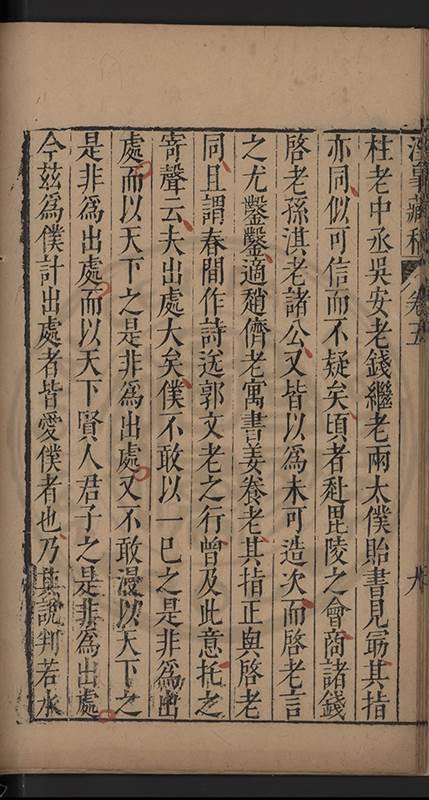 杜老中丞吳安老錢繼老兩太僕貽書見勗其指
亦同似可信而不疑矣頃者赴毘陵之會商諸錢
啓老孫淇老諸公又皆以為未可造次而啓老言
之尤鑿鑿適趙儕老寓書姜養老其指正與啓老
同且謂春間作詩送郭文老之行曾及此意托之
寄聲云夫出處大矣僕不敢以一巳之是非為出
處而以天下之是非為出處又不敢漫以天下之
是非為出處而以天下賢人君子之是非為出處
今玆為僕計出處者皆愛僕者也乃其說判若水